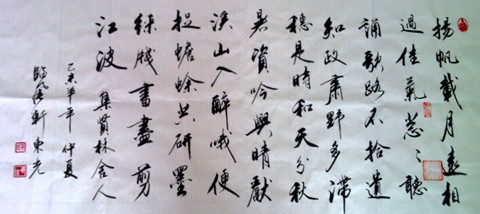 揚帆載月遠相
過佳氣蔥々聽
誦歌路不拾遺
知政肅野多滯
穗是時和天分秋
暑資吟興晴獻
溪山入醉哦便
捉蟾蜍共研墨
綵牋書盡剪
江波 集賢林舍人
乙未羊年仲夏
臨風軒 東光